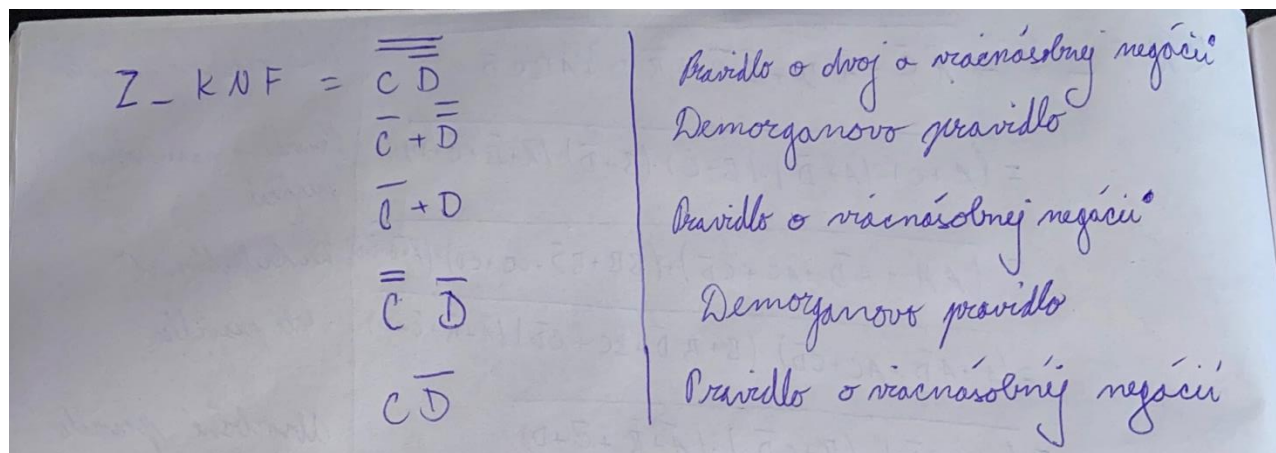 Z_KNF = C̿ D̿̅ Pravidlo o dvoj a viacnásobnej negácii
C̅ + D̿ Demorganovo pravidlo
C̅ + D Pravidlo o viacnásobnej negácii
C̿ D̅ Demorganovo pravidlo
C D̅ Pravidlo o viacnásobnej negácií